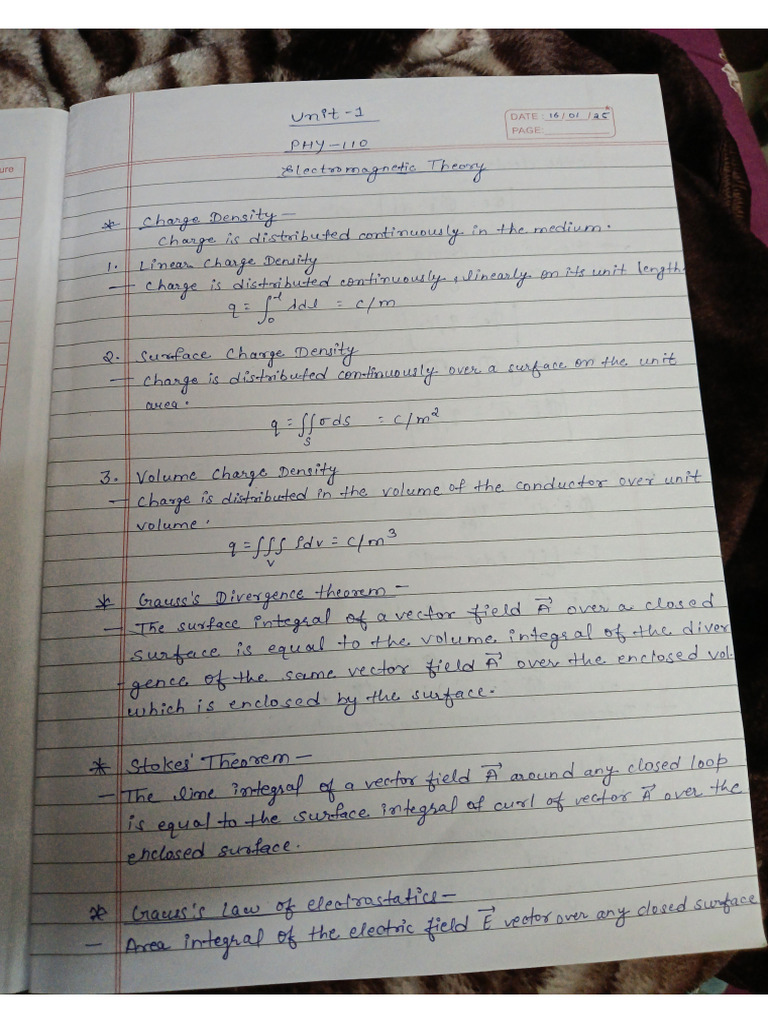 ure
Unit-1
DATE: 16/01/25
PAGE:
PHY-110
Electromagnetic Theory
* Charge Density-
Charge is distributed continuously in the medium.
1. Linear Charge Density
- Charge is distributed continuously, linearly on its unit length.
q = ∫₀ˡ λdl = c/m
2. Surface Charge Density
- Charge is distributed continuously over a surface on the unit
area.
q = ∬ₛ σds = c/m²
3. Volume Charge Density
- Charge is distributed in the volume of the conductor over unit
volume.
q = ∭ᵥ ρdv = c/m³
* Gauss's Divergence theorem-
- The surface integral of a vector field A⃗ over a closed
surface is equal to the volume integral of the diver
-gence of the same vector field A⃗ over the enclosed vol.
which is enclosed by the surface.
* Stokes' Theorem-
- The line integral of a vector field A⃗ around any closed loop
is equal to the surface integral of curl of vector A⃗ over the
enclosed surface.
* Gauss's Law of electrostatics-
- Area integral of the electric field E⃗ vector over any closed surface